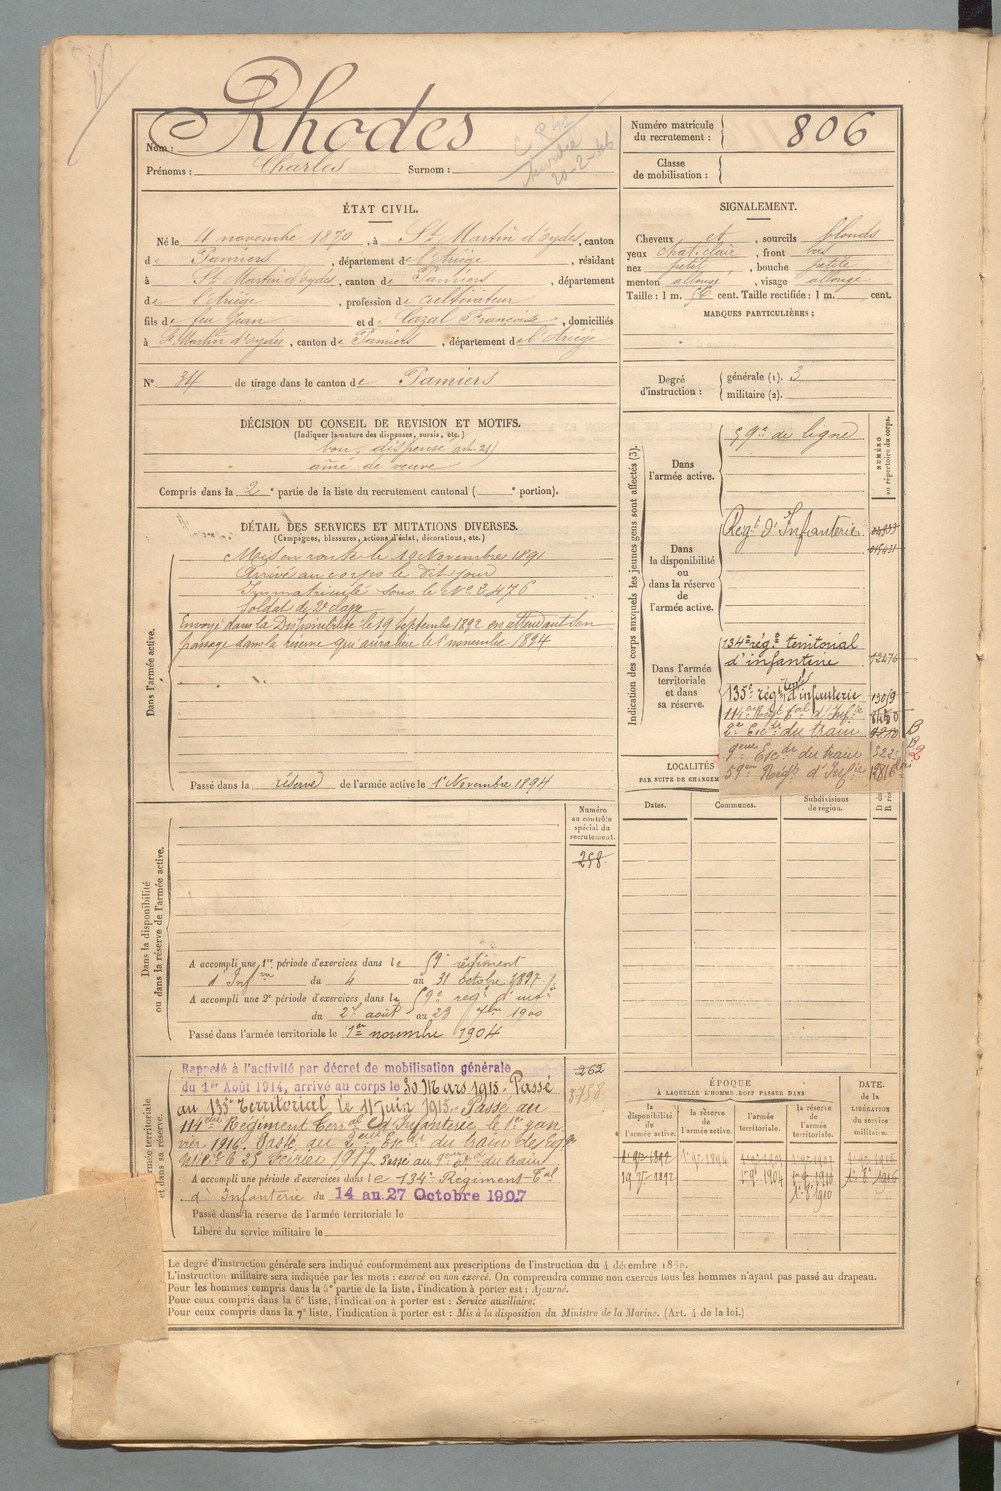 Nom : Rhodes
Prénoms : Charles Surnom :
Numéro matricule du recrutement : 806
Classe de mobilisation :
ÉTAT CIVIL.
Né le 4 novembre 1870, à St Martin d'oydes, canton
de Pamiers, département de l'Ariège, résidant
à St Martin d'oydes, canton de Pamiers, département
de l'Ariège, profession de cultivateur
fils de feu Jean et de Cazal Françoise, domiciliés
à St Martin d'oydes, canton de Pamiers, département de l'Ariège
N° 34 de tirage dans le canton de Pamiers
SIGNALEMENT.
Cheveux et, sourcils blonds
yeux chat. clair, front bas
nez petit, bouche petite
menton allongé, visage allongé
Taille : 1 m. 56 cent. Taille rectifiée : 1 m. cent.
MARQUES PARTICULIÈRES :
Degré d'instruction :
générale (1). 3
militaire (2).
DÉCISION DU CONSEIL DE REVISION ET MOTIFS.
(Indiquer la nature des dispenses, sursis, etc.)
bon, dispensé (art. 21)
aîné de veuve
Compris dans la 2e partie de la liste du recrutement cantonal ( e portion).
DÉTAIL DES SERVICES ET MUTATIONS DIVERSES.
(Campagnes, blessures, actions d'éclat, décorations, etc.)
Dans l'armée active.
Mis en route le 10 Novembre 1891
Arrivé au corps le dit jour
Immatriculé sous le N° 2476
Soldat de 2e classe
Envoyé dans la Disponibilité le 19 Septembre 1892 en attendant son
passage dans la réserve qui aura lieu le 1er novembre 1894
Passé dans la réserve de l'armée active le 1er Novembre 1894
Indication des corps auxquels les jeunes gens sont affectés (3).
NUMÉRO au répertoire du corps.
Dans l'armée active.
59e de ligne
Dans la disponibilité ou dans la réserve de l'armée active.
Regt d'Infanterie
Dans l'armée territoriale et dans sa réserve.
134e rég. territorial
d'infanterie 12476
135e régt Terral d'infanterie 1309
114e Regt Tal d'Infie
2e Esc. du train
9eme Esc. du train
59eme Regt d'Infie
LOCALITÉS
PAR SUITE DE CHANGEM
Dates. Communes. Subdivisions de région.
Numéro au contrôle spécial du recrutement.
258
Dans la disponibilité ou dans la réserve de l'armée active.
A accompli une 1re période d'exercices dans le 59e régiment
d'Infrie du 4 au 31 octobre 1897
A accompli une 2e période d'exercices dans le 59e regt d'infie
du 27 août au 23 7bre 1900
Passé dans l'armée territoriale le 1er novembre 1904
262
3758
Rappelé à l'activité par décret de mobilisation générale
du 1er Août 1914, arrivé au corps le 30 Mars 1915. Passé
au 135e Territorial le 11 juin 1915. Passé au
114eme Régiment Terral d'Infanterie le 1er jan
vier 1916. Passé au 2eme Esc. du train des Eqges
25 Février 1917. Passé au 9eme Esc. du train
A accompli une période d'exercices dans le 134e Régiment Tal
d'Infanterie du 14 au 27 Octobre 1907
Passé dans la réserve de l'armée territoriale le
Libéré du service militaire le
ÉPOQUE
À LAQUELLE L'HOMME DOIT PASSER DANS
la disponibilité de l'armée active.
la réserve de l'armée active.
l'armée territoriale.
la réserve de l'armée territoriale.
DATE. de la LIBÉRATION du service militaire.
Le degré d'instruction générale sera indiqué conformément aux prescriptions de l'instruction du 4 décembre 1889.
L'instruction militaire sera indiquée par les mots : exercé ou non exercé. On comprendra comme non exercés tous les hommes n'ayant pas passé au drapeau.
Pour les hommes compris dans la 5e partie de la liste, l'indication à porter est : Ajourné.
Pour ceux compris dans la 6e liste, l'indication à porter est : Service auxiliaire.
Pour ceux compris dans la 7e liste, l'indication à porter est : Mis à la disposition du Ministre de la Marine. (Art. 4 de la loi.)